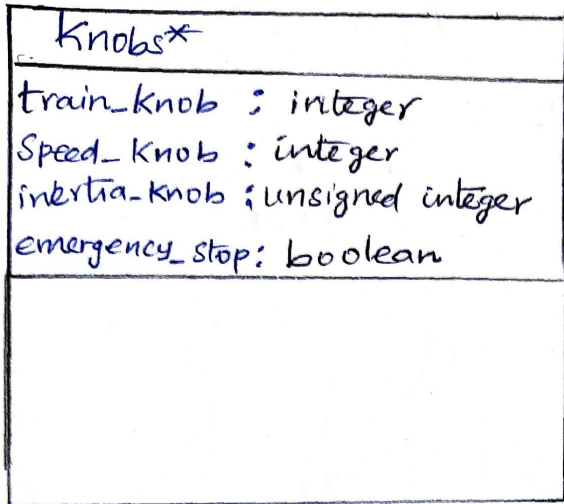 Knobs*
train_knob : integer
Speed_knob : integer
inertia_knob : unsigned integer
emergency_stop : boolean